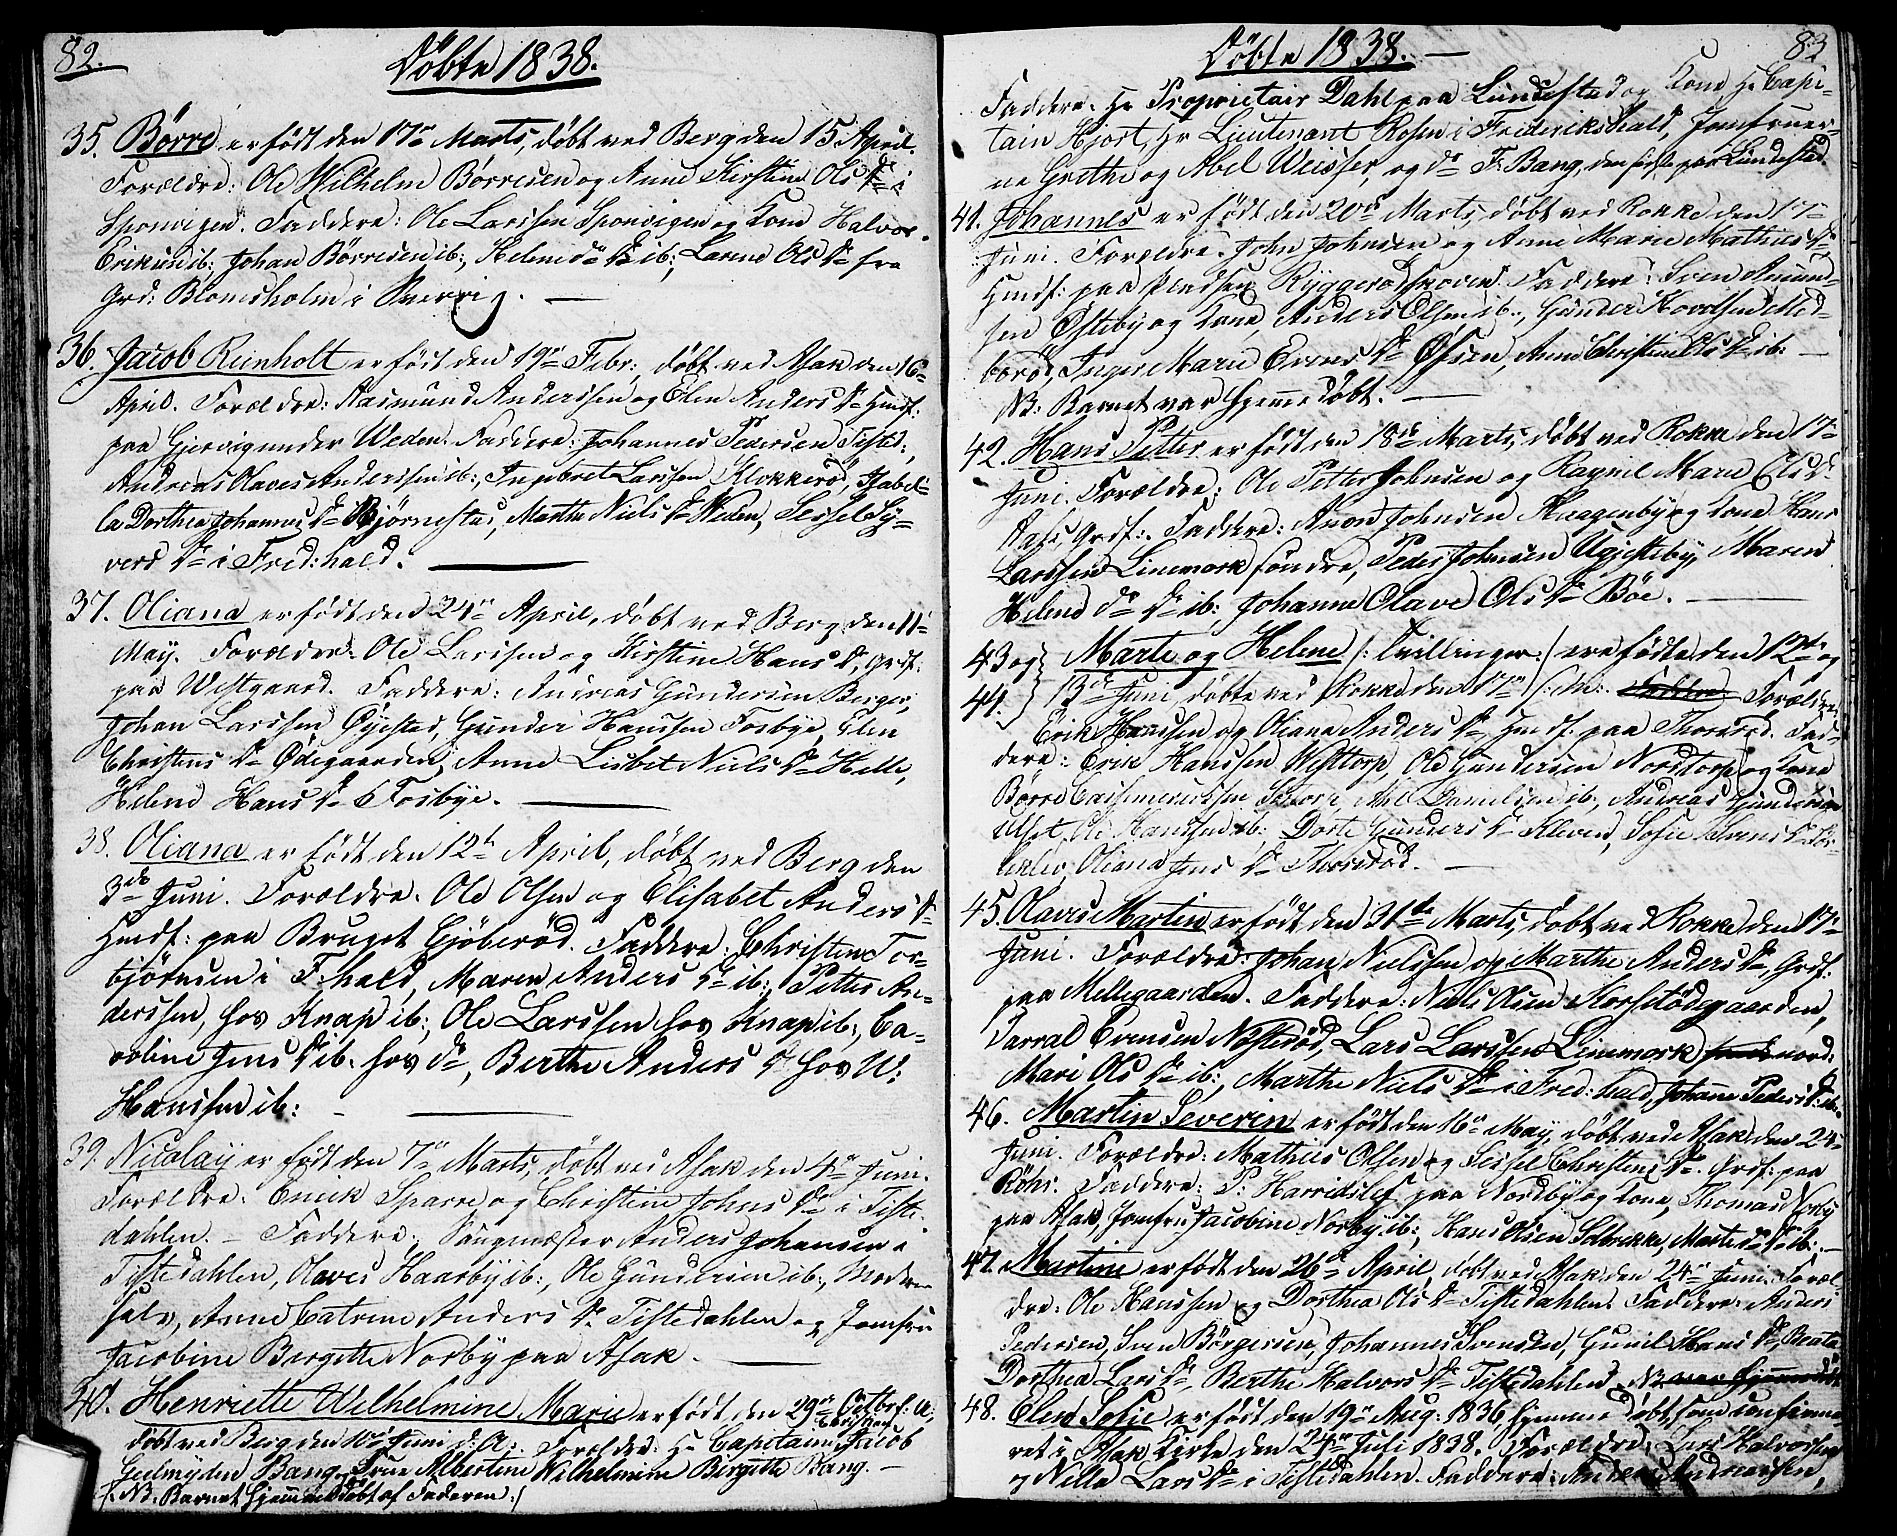 82.
Döbte 1838.
35. Börre er födt den 17de Marts, döbt ved Berg den 15 April.
Forældre: Ole Wilhelm Börresen og Anne Kirstine Ols Dr i
Sponvigen. Faddere: Ole Larssen Sponvigen og Kone Halvor
Eriksen ib:, Johan Börresen ib:, Helene do Dr ib:, Larene Ols Dr fra
Grd: Blomsholm i Sverrig.
36. Jacob Reinholt er födt den 19de Febr:, döbt ved Asak den 16de
April. Forældre: Rasmund Anderssen og Elen Anders Dr Hmdf:
paa Gjervig under Weden. Faddere: Johannes Pedersen Tisted:,
Andreas Olaves Anderssen ib:, Ingebret Larssen Klokkeröd, Isabel-
la Dorthea Johannes Dr Björnestad, Marthe Niels Dr Weden, Sessel Sy-
vers Dr i Fred:hald.
37. Oliana er födt den 24de April, döbt ved Berg den 11te
May. Forældre: Ole Larssen og Kirstine Hans Dr, Grdf:
paa Westgaard. Faddere: Andreas Gundersen Berger,
Johan Larssen Öyestad, Gunder Hanssen Fosbye, Elen
Christens Dr Ödegaarden, Anne Lisbet Niels Dr Helle,
Helene Hans Dr Fosbye.
38. Oliana er födt den 12te April, döbt ved Berg den
3die Juni. Forældre: Ole Olsen og Elisabet Anders Dr
Hmdf: paa Bruget Gjöberöd. Faddere: Christen Tor-
björnsen i F:hald, Maren Anders Dr ib:, Petter An-
derssen, hos Knap ib:, Ole Larssen hos Knap ib:, Ca-
roline Jens Dr ib: hos do, Berthe Anders Dr hos W:
Hanssen ib:
39. Nicolay er födt den 7de Marts, döbt ved Asak den 4de Juni.
Forældre: Enick Sparre og Christine Johns Dr i Tiste-
dahlen. – Faddere: Saugmester Anders Johansen i
Tistedahlen, Olaves Haarby ib:, Ole Gundersen ib:, Moderen
selv, Anne Catrine Anders Dr Tistedahlen og Jomfru
Jacobine Bergitte Norby paa Asak.
40. Henriette Wilhelmine Marie er födt den 29de Octbr: f: A:
döbt ved Berg den 10de Juni d: A:. Forældre: Hr Capitain Jacob
Geelmyden Bang, Frue Albertine Wilhelmine Birgitte Bang. –
/: NB. Barnet hjemmedöbt af Faderen :/
83
Döbte 1838. –
Faddere: Hr Proprietair Dahl paa Lundestad og Kone Hr Capi-
tain Hjort, Hr Lieutenant Rosen i Friderikshald, Jomfruer-
ne Grethe og Abel Weisser, og do F: Bang, den sidste paa Lundestad.
41. Johannes er födt den 20de Marts, döbt ved Rokke den 17de
Juni. Forældre: John Johnsen og Anne Marie Mathies Dr
Hmdf: paa Pladsen Ryggerödskoven. Faddere: Sven Amund-
sen Östeby og Kone, Anders Olsen ib:, Gunder Hovelsen Med-
böröd, Inger Marie Evens Dr Ösen, Anne Christine Ols Dr ib: –
NB: Barnet var hjemmedöbt.
42. Hans Petter er födt den 18de Marts, döbt ved Rokke den 17de
Juni. Forældre: Ole Petter Johnsen og Ragnil Marie Ols Dr
Aase, Grdf:. Faddere: Aron Johnsen Haagenby og Kone Hans
Larssen Linemork söndre, Peder Johnsen Ugjesteby, Maren
Helene do Dr ib:, Johanne Olave Ols Dr Böe.
43 og
44.
Marte og Helene /: Tvillinger :/ ere födte den 12te og
13de Juni, döbte ved Rokke den 17de Forældre
Erik Hanssen og Oliane Anders Dr Hmdf: paa Thoreröd. Fad-
dere: Erik Hanssen Westtorp, Ole Gundersen Nordtorp og Kone
Börre Torp, Daniel ib:, Andreas Gundersen
Ole Hanssen ib: Dorte Gunders Dr Kleven, Sofie Hans Dr
Oliana Jens Dr Thoreröd.
45. Olaves Martin er födt den 31te Marts, döbt ved Rokke den 17de
Juni. Forældre: Johan Nielssen og Marthe Anders Dr, Grdf:
paa Mellegaarden. Faddere: Niels Olsen Korsetödegaarden,
Evensen Nösteröd, Lars Larssen Linemork nord:
Mari Ols Dr ib:, Marthe Niels Dr i Fred:hald, Johanne Peders Dr ib:
46. Martin Severin er födt den 16de May, döbt ved Asak den 24de
Juni. Forældre: Mathies Olsen og Sessel Christens Dr Grdf: paa
Röhs. Faddere: P: Harridslef paa Nordby og Kone, Thomas Norby
paa Asak, Jomfru Jacobine Norby ib:, Hans Olsen Sabrekke, Marte do Dr ib:
47. Martine er födt den 26de April, döbt ved Asak den 24de Juni. Foræl-
dre: Ole Hanssen og Dorthea Ols Dr Tistedahlen. Faddere: Anders
Pedersen, Sven Börgersen, Johannes Svensen, Gunil Hans Dr, Beata
Dorthea Lars Dr, Berthe Halvors Dr Tistedahlen.
48. Elen Sofie er födt den 19de Aug: 1836, hjemmedöbt, som confirme-
ret i Asak Kirke den 24de Juli 1838. Forældre: Lars Halvorssen
og Nille Lars Dr i Tistedahlen. Faddere: Anders Andreassen,